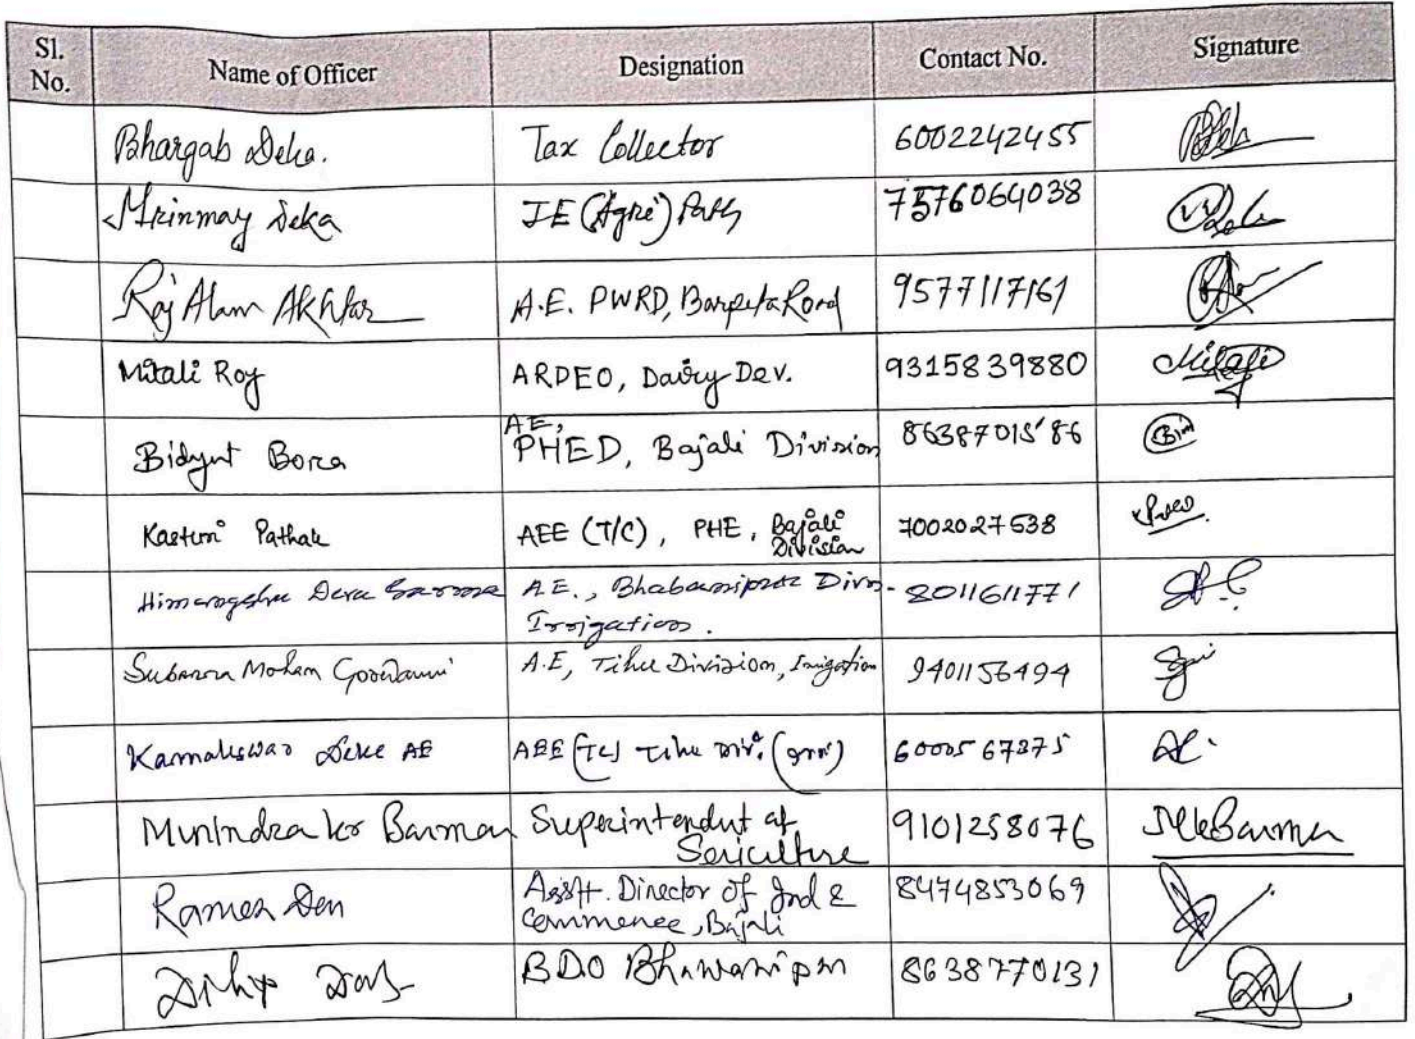 Sl. No. Name of Officer Designation Contact No. Signature
Bhargab Deka. Tax Collector 6002242455
Mrinmay Deka JE (Agri) 7576064038
Raj Alam Akhtar A.E. PWRD, Barpeta Road 9577117161
Mitali Roy ARDEO, Dairy Dev. 9315839880 Mitali
Bidyut Bora AE, PHED, Bajali Division 8638701586
Kasturi Pathak AEE (T/C), PHE, Bajali Division 7002027538
Himangshu Deva Sarma A.E., Bhabanipur Divn- Irrigation. 8011611771
Mohan Goswami A.E, Tihu Division, Irrigation 9401156494
Kamaleswar Deka AE AEE (TC) Tihu Div. 6000567375
Munindra kr Barman Superintendent of Sericulture 9101258076 MkBarman
Ramen Den Asstt. Director of Ind & Commerce, Bajali 8474853069
Dilip Das BDO Bhawanipur 8638770131